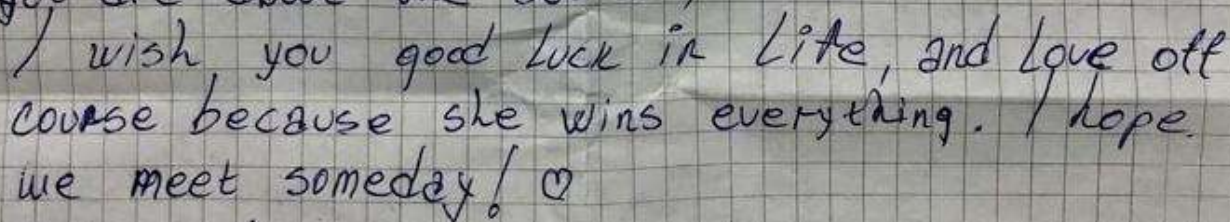 I wish you good luck in life, and love off
course because she wins everything. I hope.
we meet someday! ♡